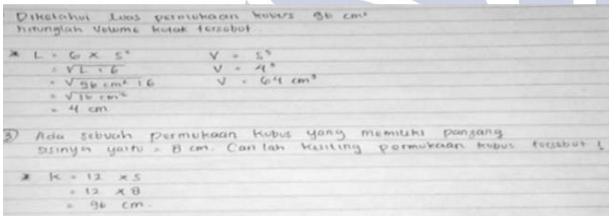 Diketahui luas permukaan kubus 96 cm²
hitunglah volume kotak tersebut
* L = 6 × s² V = s³
= √L : 6 V = 4³
= √96 cm² : 6 V = 64 cm³
= √16 cm²
= 4 cm
3) Ada sebuah permukaan kubus yang memiliki panjang
sisinya yaitu = 8 cm. Cari lah keliling permukaan kubus tersebut !
* K = 12 × s
= 12 × 8
= 96 cm.